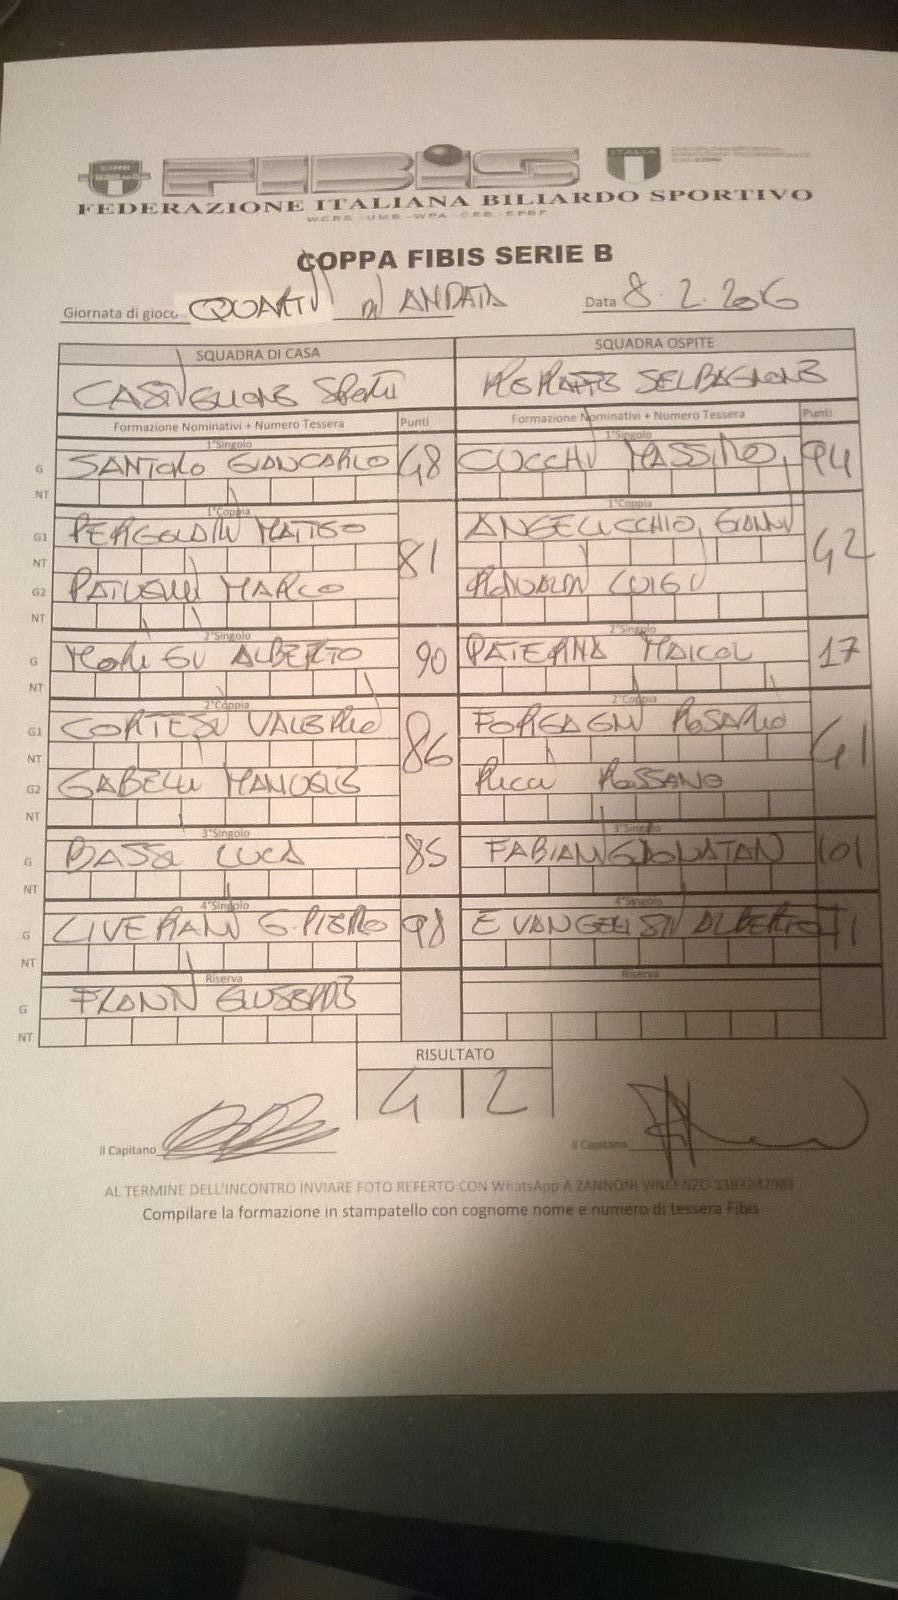 FIBiS
FEDERAZIONE ITALIANA BILIARDO SPORTIVO
COPPA FIBIS SERIE B
Giornata di gioco QUARTI DI ANDATA Data 8.2.2016
SQUADRA DI CASA SQUADRA OSPITE
CASTIGLIONE
Formazione Nominativi + Numero Tessera Punti Formazione Nominativi + Numero Tessera Punti
1°Singolo 1°Singolo
G SANTORO GIANCARLO 48 COCCHI MASSIMO 94
NT
1°Coppia 1°Coppia
G1 PERGOLINI MATTEO 81 ANGELICCHIO GIANNI 42
NT
G2 MARCO LUIGI
NT
2°Singolo 2°Singolo
G ALBERTO 90 PATERNA MAICOL 17
NT
2°Coppia 2°Coppia
G1 CORTESI VALERIO 86 ROSARIO 41
NT
G2 GABELLI RICCI ROSSANO
NT
3°Singolo 3°Singolo
G BASSI LUCA 85 FABIANI GIONATAN 101
NT
4°Singolo 4°Singolo
G LIVERANI G.PIERO 98 EVANGELISTI ALBERTO 71
NT
Riserva Riserva
G GIUSEPPE
NT
RISULTATO
4 2
Il Capitano Il Capitano
AL TERMINE DELL'INCONTRO INVIARE FOTO REFERTO CON WhatsApp A ZANNONI VINCENZO
Compilare la formazione in stampatello con cognome nome e numero di tessera Fibis